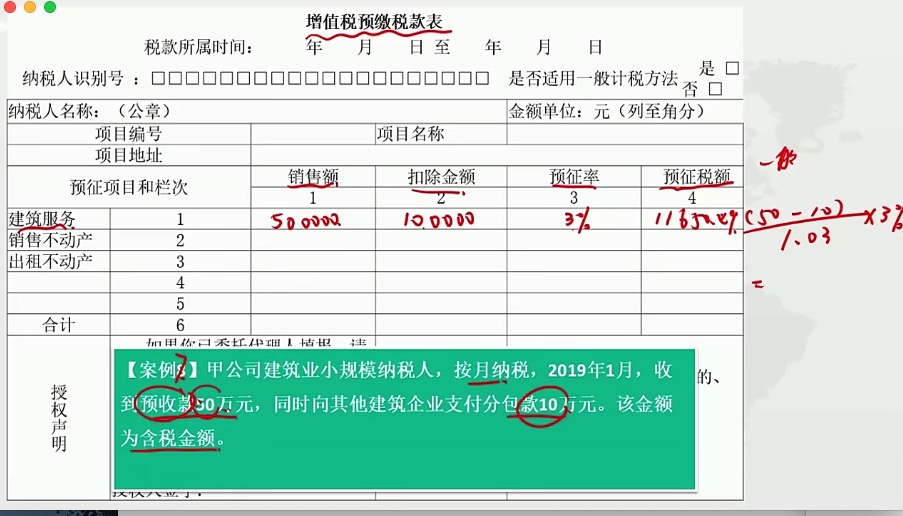 增值税预缴税款表
税款所属时间： 年 月 日 至 年 月 日
纳税人识别号 ：□□□□□□□□□□□□□□□□□□□□ 是否适用一般计税方法 是 □
否 □
纳税人名称：（公章） 金额单位：元（列至角分）
项目编号 项目名称
项目地址
预征项目和栏次 销售额 扣除金额 预征率 预征税额
1 2 3 4
一般
建筑服务 1 500000 100000 3% (50-10)/1.03 ×3%
=
销售不动产 2
出租不动产 3
4
5
合计 6
授权声明
【案例8】甲公司建筑业小规模纳税人，按月纳税，2019年1月，收
到预收款50万元，同时向其他建筑企业支付分包款10万元。该金额
为含税金额。
7
的、